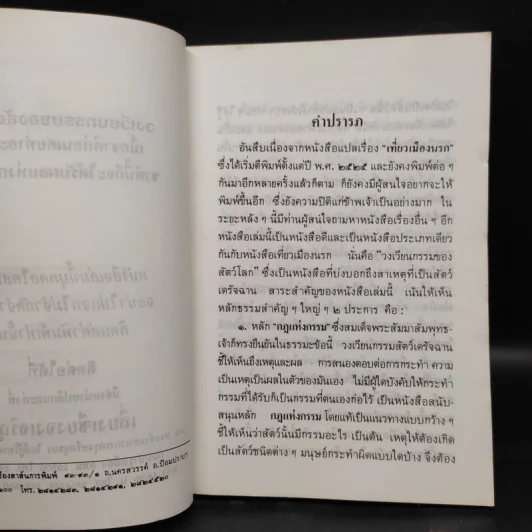 ื่องสาส์นการพิมพ์ ๙๓-๙๙/๑ ถ.นครสวรรค์ อ.ป้อมปราบฯ
๑๐๐ โทร. ๒๘๑๔๒๘๓, ๒๘๑๔๒๙๑, ๒๘๒๔๕๒๐
คำปรารภ
อันสืบเนื่องจากหนังสือแปลเรื่อง "เที่ยวเมืองนรก"
ซึ่งได้เริ่มตีพิมพ์ตั้งแต่ปี พ.ศ. ๒๕๒๕ และยังคงพิมพ์ต่อ ๆ
กันมาอีกหลายครั้งแล้วก็ตาม ก็ยังคงมีผู้สนใจอยากจะให้
พิมพ์ขึ้นอีก ซึ่งยังความปิติแก่ข้าพเจ้าเป็นอย่างมาก ใน
ระยะหลัง ๆ นี้มีท่านผู้สนใจถามหาหนังสือเรื่องอื่น ๆ อีก
หนังสือเล่มนี้เป็นหนังสือดีและเป็นหนังสือประเภทเดียว
กันกับหนังสือเที่ยวเมืองนรก นั่นคือ "วงเวียนกรรมของ
สัตว์โลก" ซึ่งเป็นหนังสือที่บ่งบอกถึงสาเหตุที่เป็นสัตว์
เดรัจฉาน สาระสำคัญของหนังสือเล่มนี้ เน้นให้เห็น
หลักธรรมสำคัญ ๆ ใหญ่ ๆ ๒ ประการ คือ :
๑. หลัก "กฎแห่งกรรม" ซึ่งสมเด็จพระสัมมาสัมพุทธ-
เจ้าก็ทรงยืนยันในธรรมะข้อนี้ วงเวียนกรรมสัตว์เดรัจฉาน
ชี้ให้เห็นถึงเหตุและผล การสนองตอบต่อการกระทำ ความ
เป็นเหตุเป็นผลในตัวของมันเอง ไม่มีผู้ใดบังคับให้กระทำ
กรรมที่ได้รับก็เป็นกรรมที่ตนเองก่อไว้ เป็นหนังสือสนับ-
สนุนหลัก กฎแห่งกรรม โดยแท้เป็นแนวทางแบบกว้าง ๆ
ชี้ให้เห็นว่าสัตว์นั้นมีกรรมอะไร เป็นต้น เหตุให้ต้องเกิด
เป็นสัตว์ชนิดต่าง ๆ มนุษย์กระทำผิดแบบใดบ้าง จึงต้อง